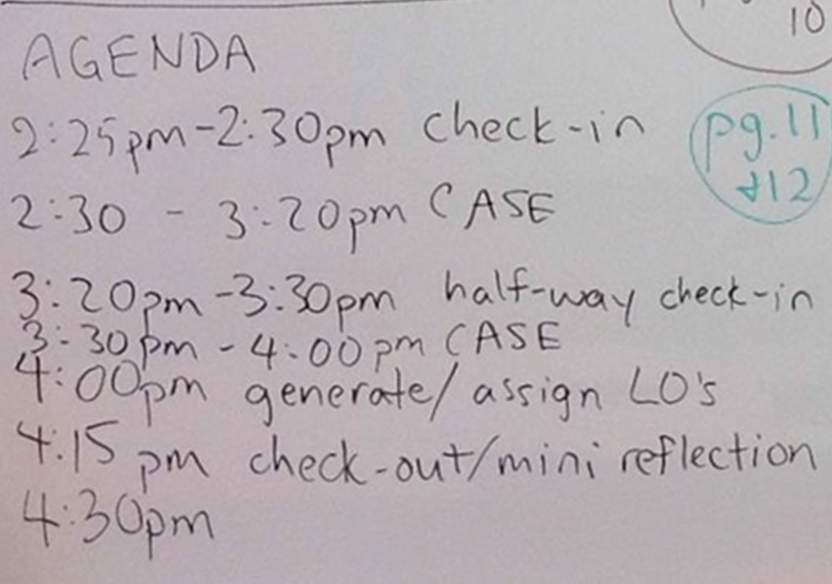 10
AGENDA
2:25pm-2:30pm check-in
pg.11
+12
2:30 - 3:20pm CASE
3:20pm-3:30pm half-way check-in
3:30pm-4:00pm CASE
4:00pm generate/assign LO's
4:15pm check-out/mini reflection
4:30pm